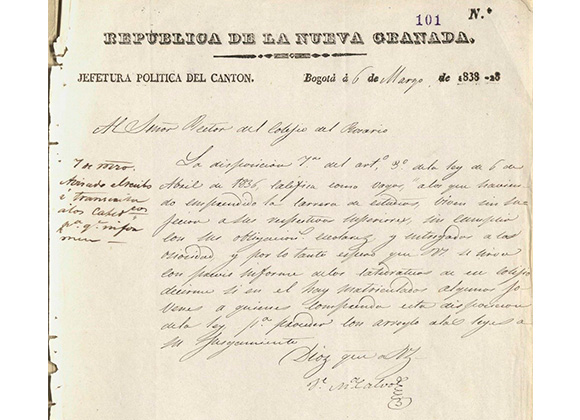 101 N.º
REPÚBLICA DE LA NUEVA GRANADA.
JEFETURA POLITICA DEL CANTON. Bogotá á 6 de Marzo de 1838-28
Al Señor Rector del Colegio del Rosario
La disposicion 7ª del artº 3º de la ley de 6 de
Abril de 1836, califica como vagos, a los que havien
do emprendido la carrera de estudios, viven sin
a sus respectivos superiores, sin cumplir
con sus obligacion escolars y entregados a la
ociosidad y por lo tanto espero que VS se sirva
con previo informe de los catedraticos de ese colegio
decirme si en el hay matriculados algunos jo
venes a quienes comprenda esta disposicion
de la ley pª proceder con arreglo a la ley a
su juzgamiento
Dios gue a VS.